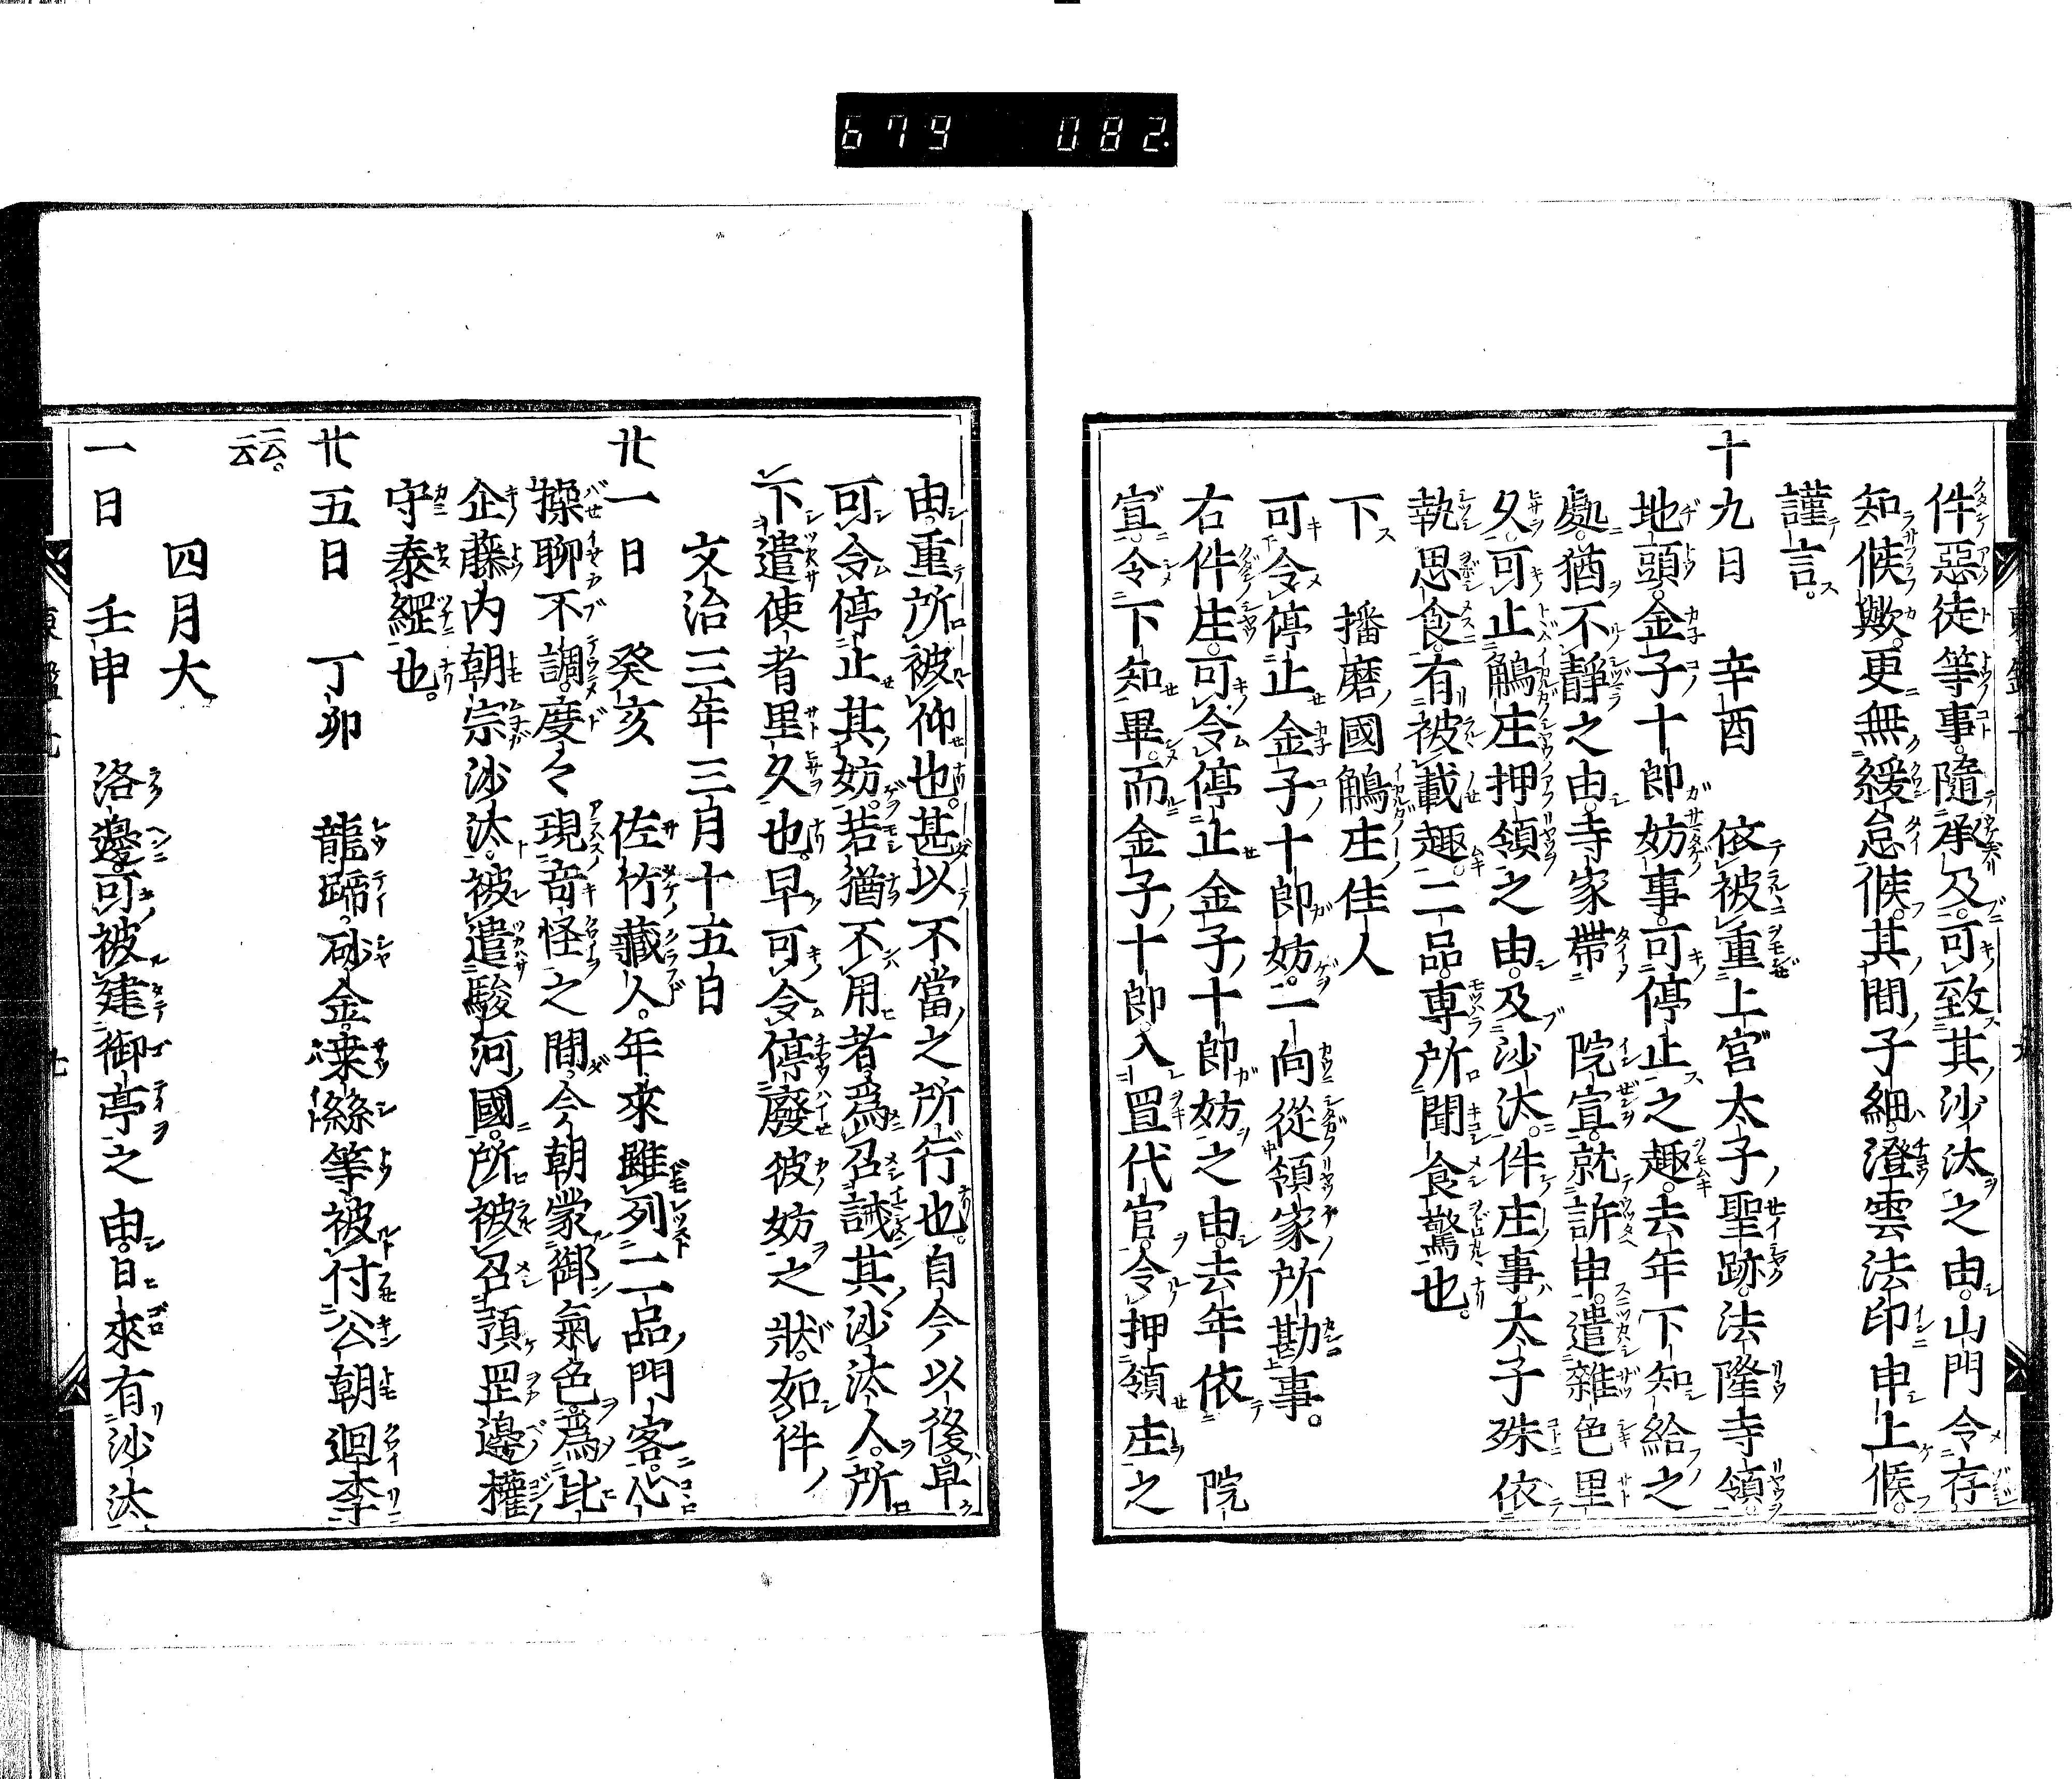 679 082
件惡徒等事。隨承及。可致其沙汰之由。山門令存
知候歟。更無緩怠候。其間子細。澄雲法印申上候。
謹言。
十九日 辛酉 依被重上宮太子聖跡。法隆寺領。
地頭。金子十郎妨事。可停止之趣。去年下知給之
處。猶不靜之由。寺家帶 院宣。就訴申。遣雜色里
久。可止鵤庄押領之由。及沙汰。件庄事。太子殊依
執思食。有被載趣。二品專所聞食驚也。
下 播磨國鵤庄住人
可令停止金子十郎妨。一向從領家所勘事。
右件庄。可令停止金子十郎妨之由。去年依 院
宣。令下知畢。而金子十郎。入置代官。令押領庄之
由。重所被仰也。甚以不當之所行也。自今以後。早
可令停止其妨。若猶不用者。爲召誡其沙汰人。所
下遣使者里久也。早可令停廢彼妨之狀。如件
文治三年三月十五日
廿一日 癸亥 佐竹藏人。年來雖列二品門客。心
操聊不調。度々現奇怪之間。今朝蒙御氣色。爲比
企藤内朝宗沙汰。被遣駿河國。所被召預罡邊權
守泰經也。
廿五日 丁卯 龍蹄。砂金。桒絲等。被付公朝迴李
云云。
四月大
一日 壬申 洛邊。可被建御亭之由。日來有沙汰